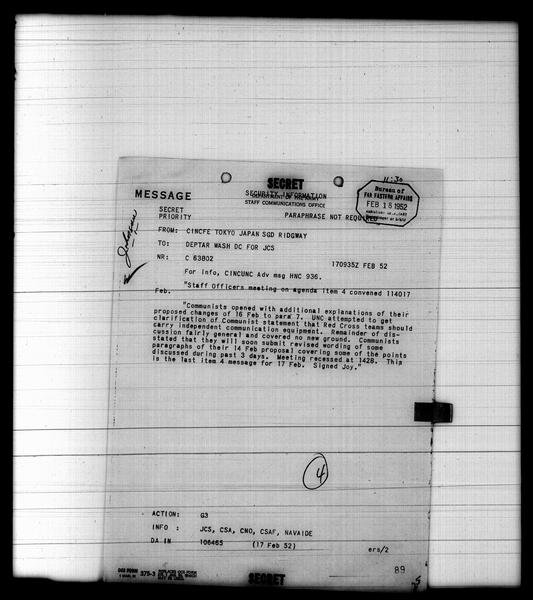 11:30
SECRET
SECURITY INFORMATION
DEPARTMENT OF THE ARMY
STAFF COMMUNICATIONS OFFICE
Bureau of
FAR EASTERN AFFAIRS
FEB 18 1952
MESSAGE
SECRET
PRIORITY
PARAPHRASE NOT REQUIRED
FROM: CINCFE TOKYO JAPAN SGD RIDGWAY
TO: DEPTAR WASH DC FOR JCS
NR: C 63802
170935Z FEB 52
Johnson
For Info, CINCUNC Adv msg HNC 936.
"Staff Officers meeting on agenda item 4 convened 114017
Feb.
"Communists opened with additional explanations of their
proposed changes of 16 Feb to para 7. UNC attempted to get
clarification of Communist statement that Red Cross teams should
carry independent communication equipment. Remainder of dis-
cussion fairly general and covered no new ground. Communists
stated that they will soon submit revised wording of some
paragraphs of their 14 Feb proposal covering some of the points
discussed during past 3 days. Meeting recessed at 1428. This
is the last item 4 message for 17 Feb. Signed Joy."
4
ACTION: G3
INFO : JCS, CSA, CNO, CSAF, NAVAIDE
DA IN 106465 (17 Feb 52)
ers/2
OCS FORM 375-3
SECRET
89